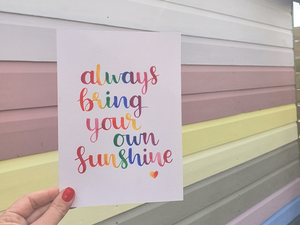 always
bring
your
own
sunshine